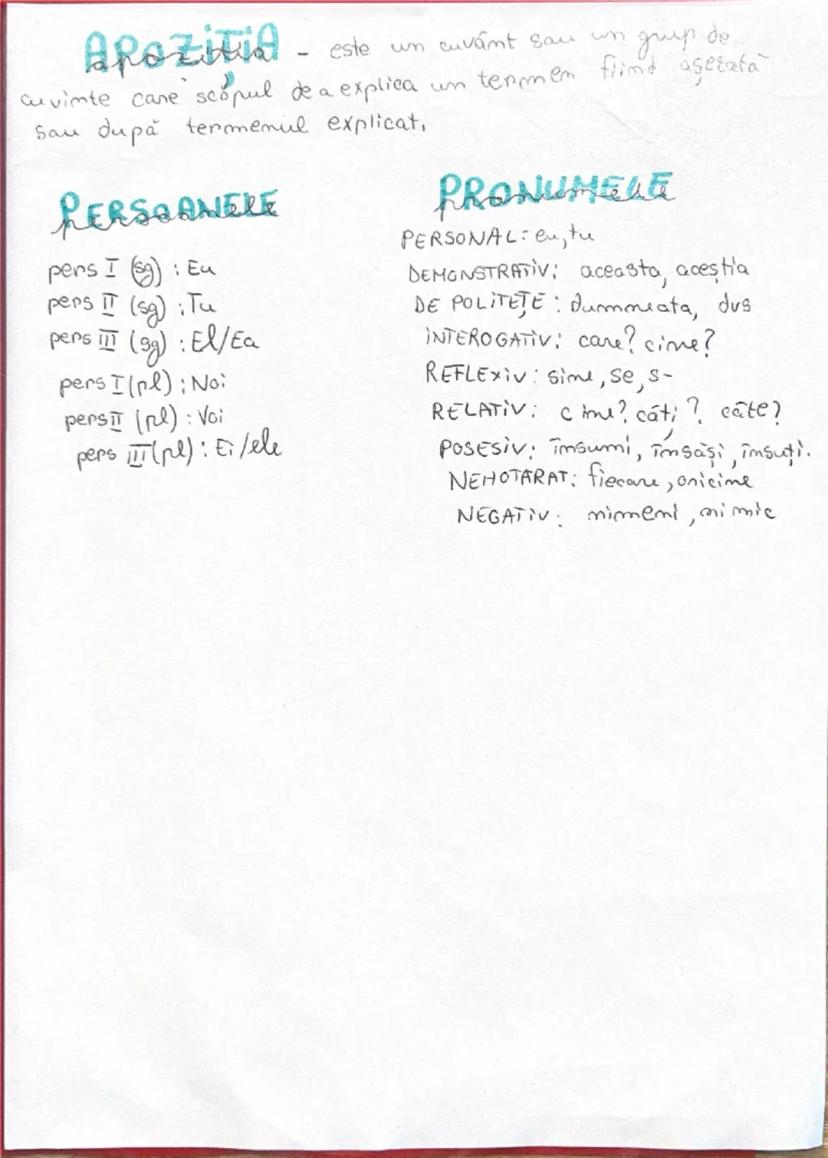 APOZIȚIA - este un cuvânt sau un grup de
apoziția
cuvinte care scopul de a explica un termen fiind așezată
sau după termenul explicat.
PERSOANELE
persoanele
pers I (sg) : Eu
pers II (sg) : Tu
pers III (sg) : El/Ea
pers I (pl) : Noi
pers II (pl) : Voi
pers III (pl) : Ei/ele
PRONUMELE
pronumele
PERSONAL: eu, tu
DEMONSTRATIV: aceasta, aceștia
DE POLITEȚE : dumneata, dvs
INTEROGATIV: care? cine?
REFLEXIV: sine, se, s-
RELATIV: cine? câți? câte?
POSESIV: însumi, însăși, însuți.
NEHOTARAT: fiecare, oricine
NEGATIV: nimeni, nimic